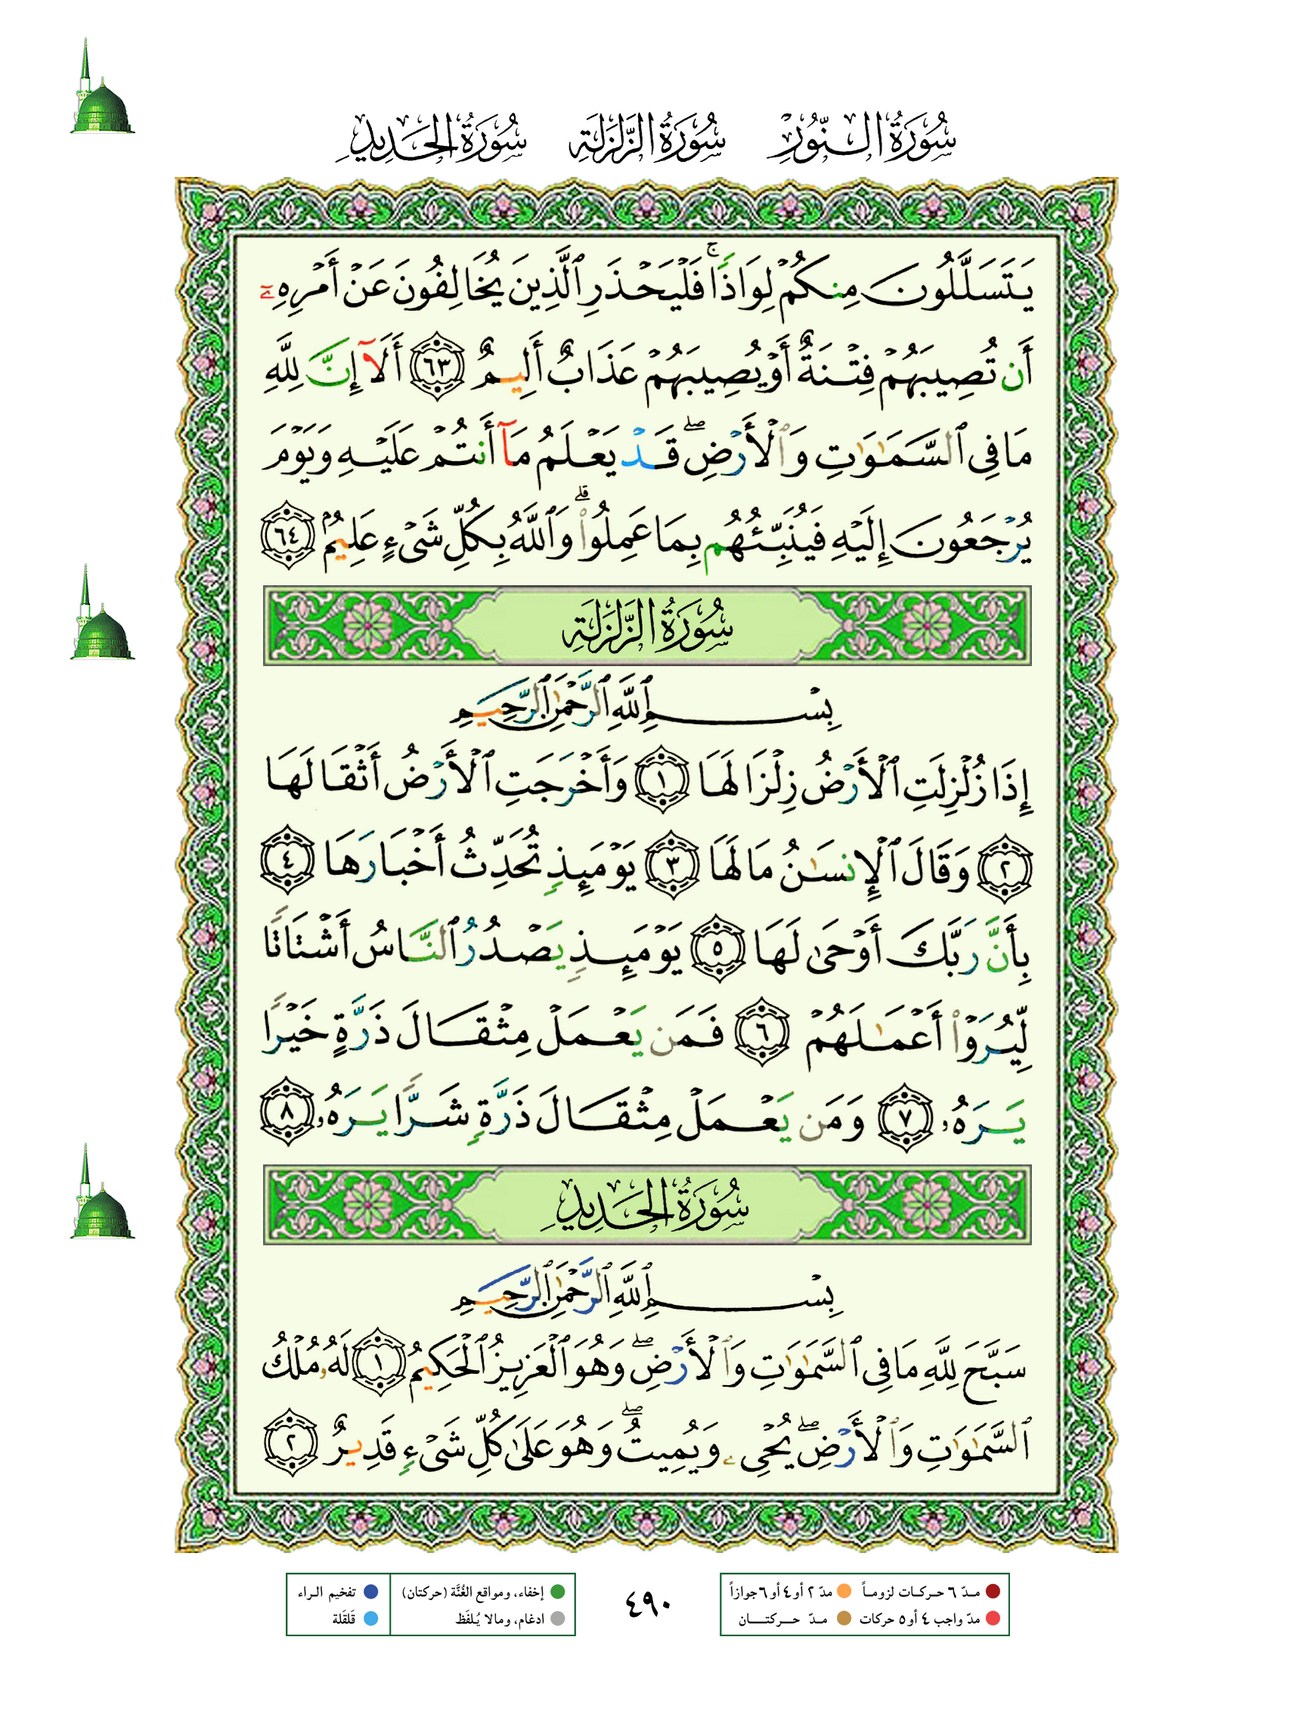 سُورَةُ النُّورْ سُورَةُ الزَّلْزَلَةِ سُورَةُ الحَدِيدِ
يَتَسَلَّلُونَ مِنكُمْ لِوَاذًا ۚ فَلْيَحْذَرِ ٱلَّذِينَ يُخَالِفُونَ عَنْ أَمْرِهِۦٓ
أَن تُصِيبَهُمْ فِتْنَةٌ أَوْ يُصِيبَهُمْ عَذَابٌ أَلِيمٌ ٦٣ أَلَآ إِنَّ لِلَّهِ
مَا فِى ٱلسَّمَٰوَٰتِ وَٱلْأَرْضِ ۖ قَدْ يَعْلَمُ مَآ أَنتُمْ عَلَيْهِ وَيَوْمَ
يُرْجَعُونَ إِلَيْهِ فَيُنَبِّئُهُم بِمَا عَمِلُوا۟ ۗ وَٱللَّهُ بِكُلِّ شَىْءٍ عَلِيمٌۢ ٦٤
سُورَةُ الزَّلْزَلَةِ
بِسْمِ ٱللَّهِ ٱلرَّحْمَٰنِ ٱلرَّحِيمِ
إِذَا زُلْزِلَتِ ٱلْأَرْضُ زِلْزَالَهَا ١ وَأَخْرَجَتِ ٱلْأَرْضُ أَثْقَالَهَا
٢ وَقَالَ ٱلْإِنسَٰنُ مَا لَهَا ٣ يَوْمَئِذٍ تُحَدِّثُ أَخْبَارَهَا ٤
بِأَنَّ رَبَّكَ أَوْحَىٰ لَهَا ٥ يَوْمَئِذٍ يَصْدُرُ ٱلنَّاسُ أَشْتَاتًا
لِّيُرَوْا۟ أَعْمَٰلَهُمْ ٦ فَمَن يَعْمَلْ مِثْقَالَ ذَرَّةٍ خَيْرًا
يَرَهُۥ ٧ وَمَن يَعْمَلْ مِثْقَالَ ذَرَّةٍ شَرًّا يَرَهُۥ ٨
سُورَةُ الحَدِيدِ
بِسْمِ ٱللَّهِ ٱلرَّحْمَٰنِ ٱلرَّحِيمِ
سَبَّحَ لِلَّهِ مَا فِى ٱلسَّمَٰوَٰتِ وَٱلْأَرْضِ ۖ وَهُوَ ٱلْعَزِيزُ ٱلْحَكِيمُ ١ لَهُۥ مُلْكُ
ٱلسَّمَٰوَٰتِ وَٱلْأَرْضِ ۖ يُحْىِۦ وَيُمِيتُ ۖ وَهُوَ عَلَىٰ كُلِّ شَىْءٍ قَدِيرٌ ٢
مـدّ ٦ حـركـات لزومـاً مدّ ٢ أو ٤ أو ٦ جوازاً
مدّ واجب ٤ أو ٥ حركات مـدّ حـــركتـــــان
٤٩٠
إخفاء، ومواقع الغُنَّة (حركتان) تفخيم الـراء
ادغام، ومالا يُـلفَظ قَلقَلة